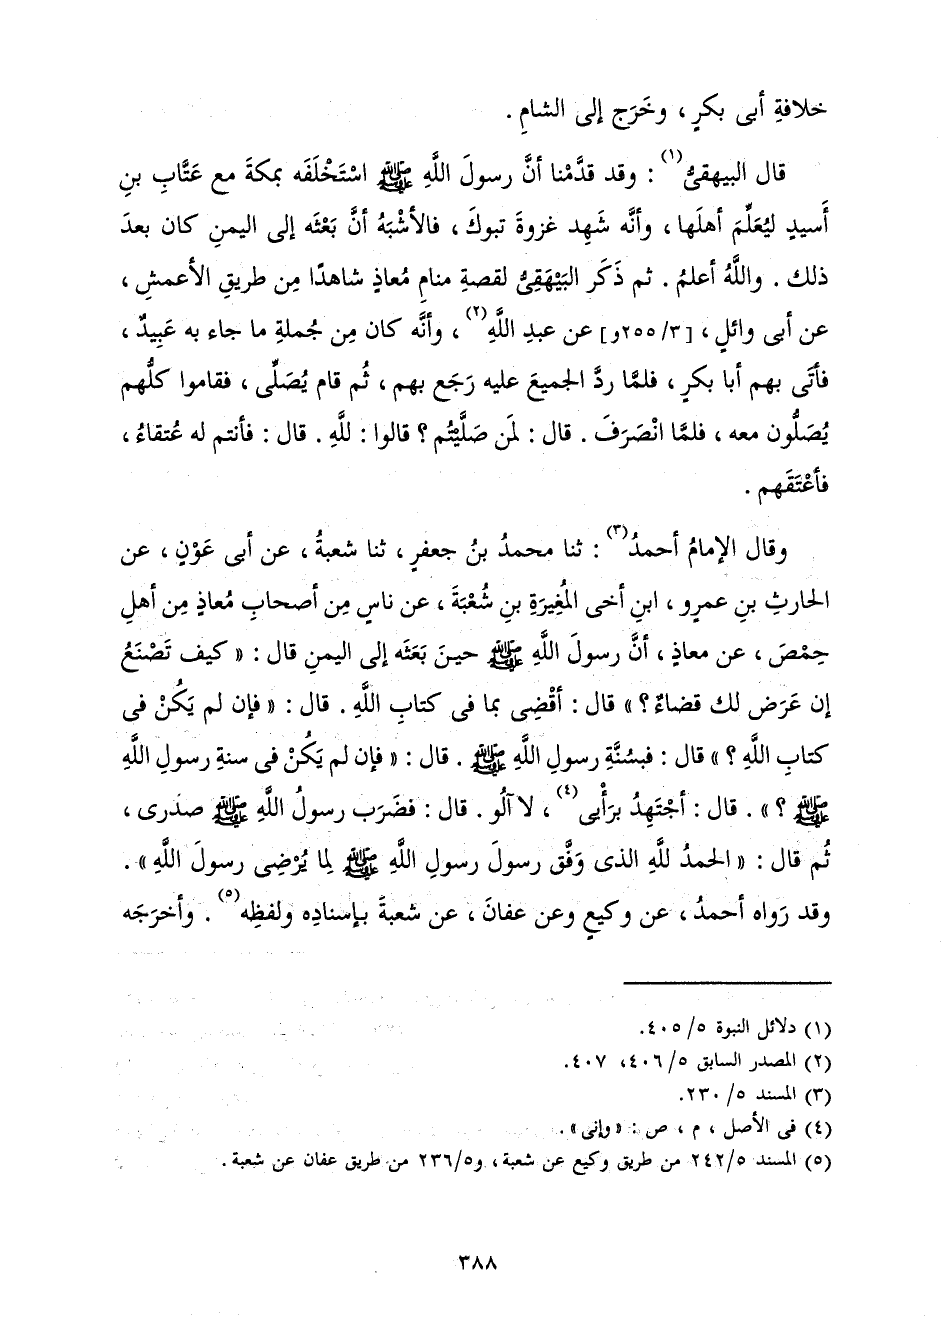 خلافةِ أبى بكرٍ ، وخَرَج إلى الشامِ .
قال البيهقىُّ(١) : وقد قدَّمْنا أنَّ رسولَ اللَّهِ ﷺ اسْتَخْلَفَه بمكةَ مع عَتَّابِ بنِ
أَسيدٍ ليُعَلِّمَ أهلَها ، وأنَّه شَهِد غزوةَ تبوكَ ، فالأشْبَهُ أنَّ بَعْثَه إلى اليمنِ كان بعدَ
ذلك . واللَّهُ أعلمُ . ثم ذَكَر البَيْهَقِىُّ لقصةِ منامِ مُعاذٍ شاهدًا مِن طريقِ الأعمشِ ،
عن أبى وائلٍ ، [٣/ ٢٥٥و] عن عبدِ اللَّهِ(٢) ، وأنَّه كان مِن جُملةِ ما جاء به عَبِيدٌ ،
فأتَى بهم أبا بكرٍ ، فلمَّا ردَّ الجميعَ عليه رَجَع بهم ، ثُم قام يُصَلِّى ، فقاموا كلُّهم
يُصَلُّون معه ، فلمَّا انْصَرَفَ . قال : لمَن صَلَّيْتُم ؟ قالوا : للَّهِ . قال : فأنتم له عُتقاءُ ،
فأعْتَقَهم .
وقال الإمامُ أحمدُ(٣) : ثنا محمدُ بنُ جعفرٍ ، ثنا شعبةُ ، عن أبى عَوْنٍ ، عن
الحارثِ بنِ عمرٍو ، ابنِ أخى المُغِيرَةِ بنِ شُعْبَةَ ، عن ناسٍ مِن أصحابِ مُعاذٍ مِن أهلِ
حِمْصَ ، عن معاذٍ ، أنَّ رسولَ اللَّهِ ﷺ حينَ بَعَثَه إلى اليمنِ قال : « كيف تَصْنَعُ
إن عَرَض لك قضاءٌ ؟ » قال : أقْضِى بما فى كتابِ اللَّهِ . قال : « فإن لم يَكُنْ فى
كتابِ اللَّهِ ؟ » قال : فبسُنَّةِ رسولِ اللَّهِ ﷺ . قال : « فإن لم يَكُنْ فى سنةِ رسولِ اللَّهِ
ﷺ ؟ » . قال : أجْتَهِدُ برَأْيى(٤) ، لا آلُو . قال : فضَرَب رسولُ اللَّهِ ﷺ صدَرى ،
ثُم قال : « الحمدُ للَّهِ الذى وَفَّق رسولَ رسولِ اللَّهِ ﷺ لِما يُرْضِى رسولَ اللَّهِ » .
وقد رَواه أحمدُ ، عن وكيعٍ وعن عفانَ ، عن شعبةَ بإسنادِه ولفظِه(٥) . وأخرَجَه
(١) دلائل النبوة ٥/ ٤٠٥.
(٢) المصدر السابق ٥/ ٤٠٦، ٤٠٧.
(٣) المسند ٥/ ٢٣٠.
(٤) فى الأصل ، م ، ص : « وإنى » .
(٥) المسند ٥/ ٢٤٢ من طريق وكيع عن شعبة ، و٥/ ٢٣٦ من طريق عفان عن شعبة .
٣٨٨